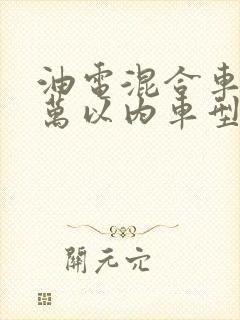 油電混合車
萬以內車型
開元穴